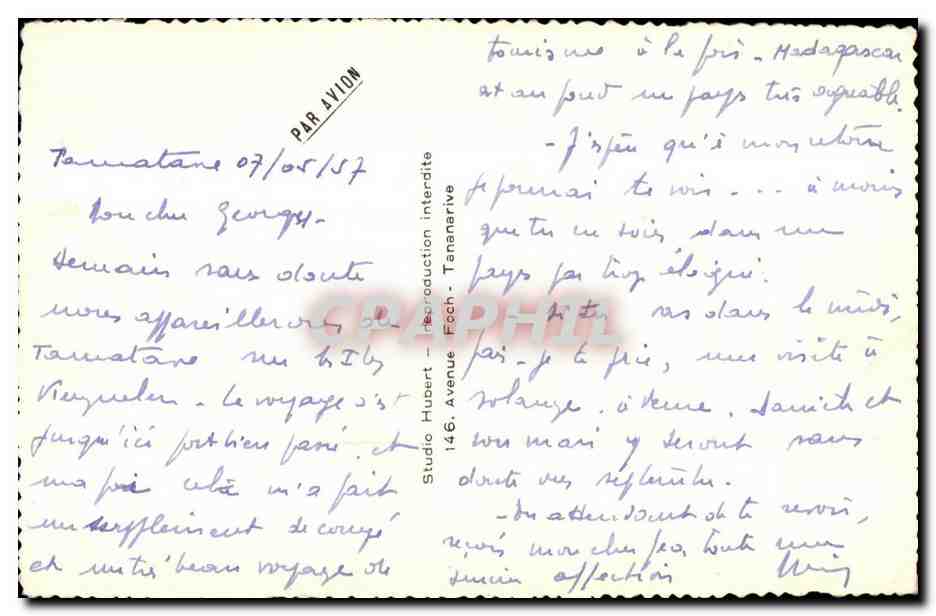 PAR AVION
Tamatave 07/05/57
Mon cher Georges -
Demain sans doute
nous appareillerons de
Tamatave sur les Iles
Kerguelen - Le voyage s'est
jusqu'ici fort bien passé, et
ma foi cela m'a fait
un supplément de congé
et un très beau voyage de
Studio Hubert — reproduction interdite
146, Avenue Foch - Tananarive
tourisme à la fois - Madagascar
est au fond un pays très agréable.
- J'espère qu'à mon retour
je pourrai te voir - .. à moins
que tu ne sois dans un
pays par trop éloigné.
- Si tu vas dans le midi,
fais - je te prie, une visite à
Solange. à Vence. et
son mari y seront sans
doute vers septembre.
- En attendant de te revoir,
reçois mon cher toute une
affection
CPAPHIL